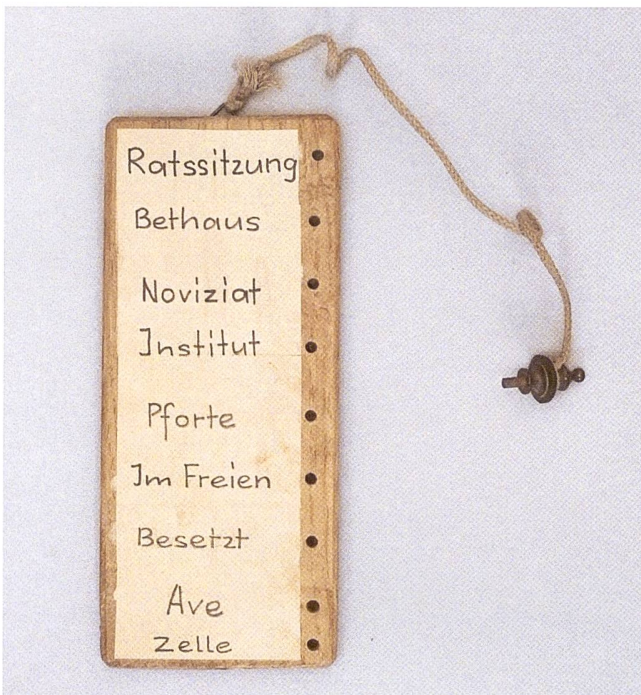 Ratssitzung
Bethaus
Noviziat
Institut
Pforte
Im Freien
Besetzt
Ave
Zelle